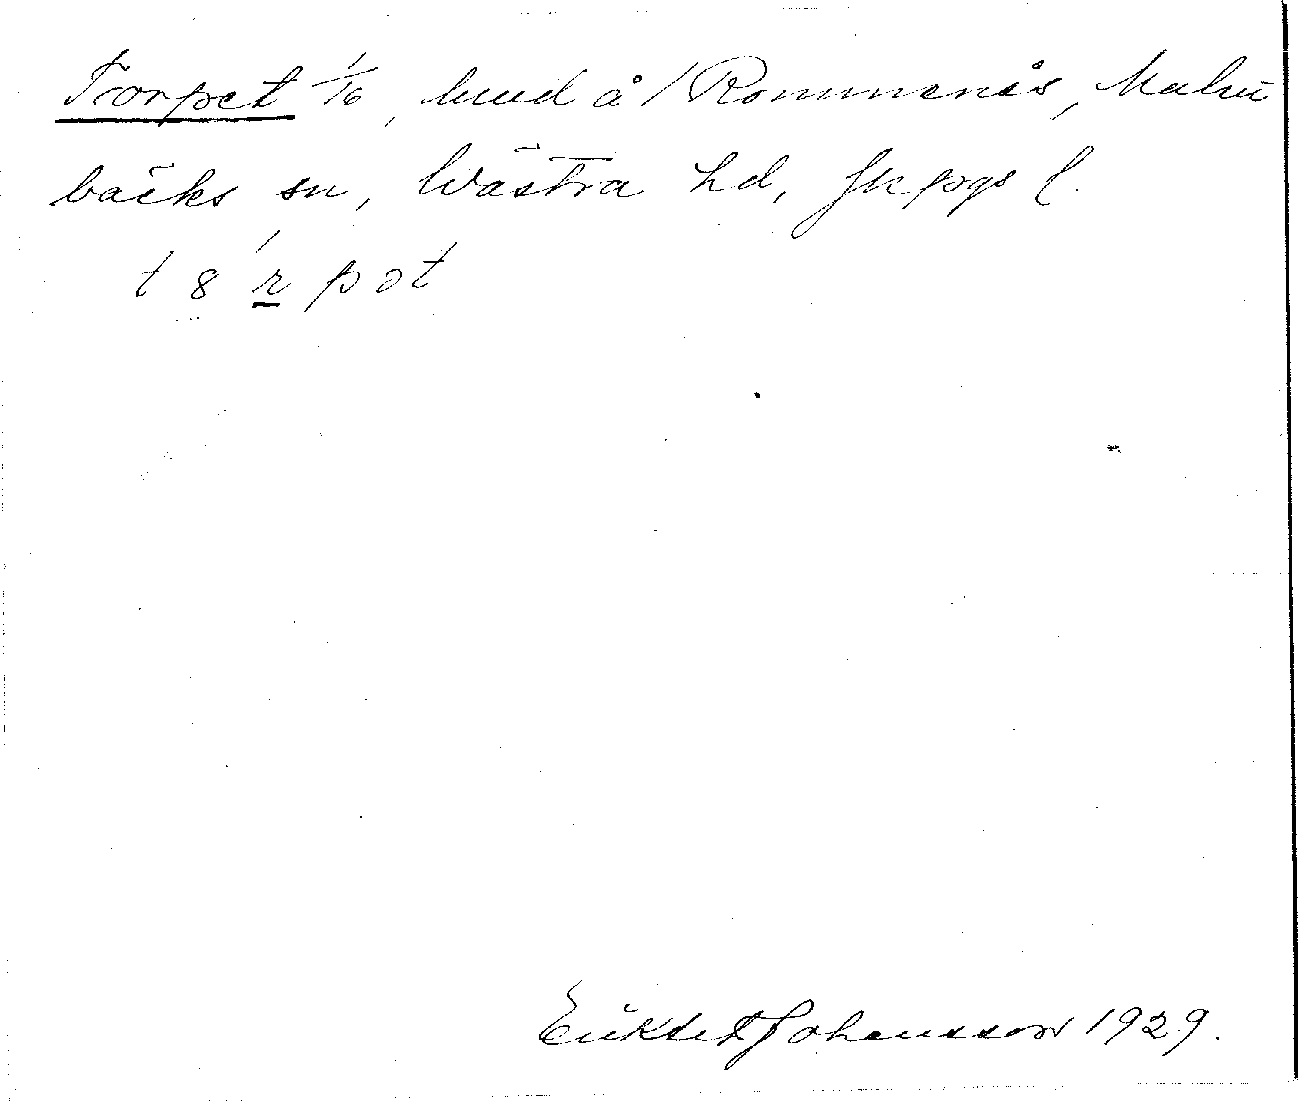 Torpet 1/6, lund å / Rommenås, Malm
bäcks sn, Västra hd, Jkpgs l.
t 8 ŕ p ə t
Johansson 1929.